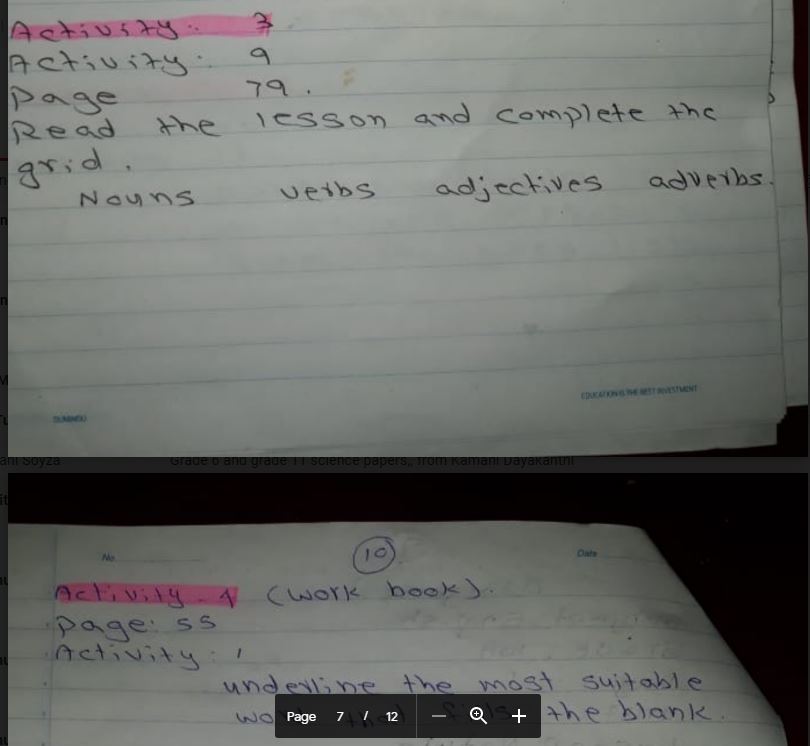 Activity: 3
Activity: 9
Page 79.
Read the lesson and complete the
grid.
Nouns verbs adjectives adverbs.
EDUCATION IS THE BEST INVESTMENT
Grade 6 and grade 11 science papers,, from Kamani Dayakanthi
No
10
Date
Activity - 4 (work book).
Page: 55
Activity: 1
underline the most suitable
the blank.
Page 7 / 12